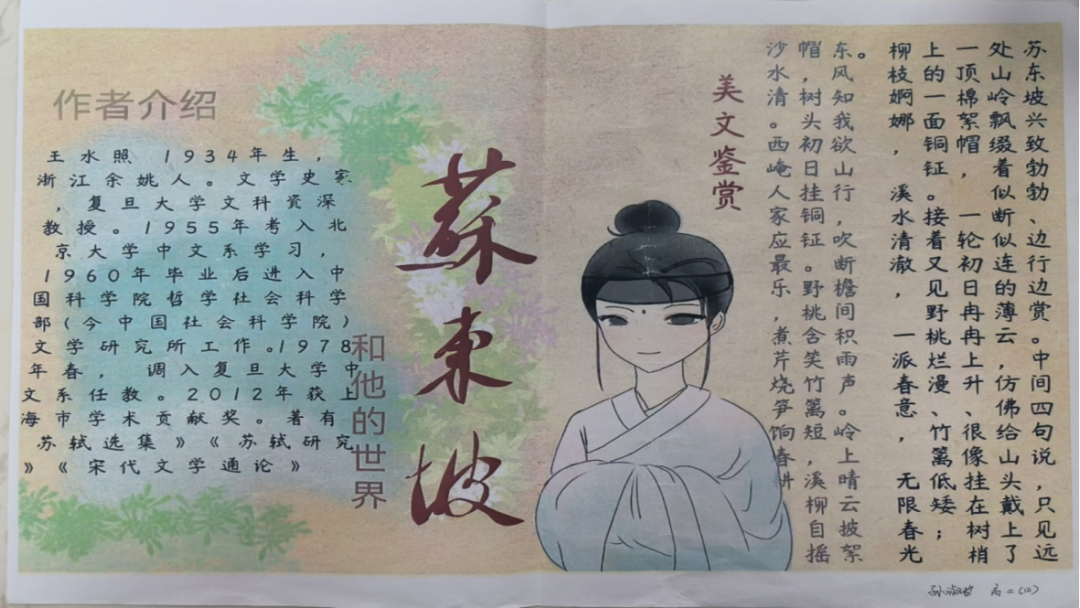 作者介绍
王水照 1934年生，
浙江余姚人。文学史家
，复旦大学文科资深
教授。1955年考入北
京大学中文系学习，
1960年毕业后进入中
国科学院哲学社会科学
部(今中国社会科学院)
文学研究所工作。1978
年春， 调入复旦大学中
文系任教。2012年获上
海市学术贡献奖。著有
苏轼选集》《苏轼研究
》《宋代文学通论》
蘇東坡
和他的世界
苏东坡兴致勃勃、边行边赏。中间四句说，只见远
处山岭飘缀着似断似连的薄云，仿佛给山头戴上了
一顶棉絮帽，一轮初日冉冉上升、很像挂在树梢
上的一面铜钲。接着又见野桃烂漫、竹篱低矮；
柳枝婀娜，溪水清澈，一派春意，无限春光
东。风知我欲山行，吹断檐间积雨声。岭上晴云披絮
帽，树头初日挂铜钲。野桃含笑竹篱短，溪柳自摇
沙水清。西崦人家应最乐，煮芹烧笋饷春耕
美文鉴赏
高二